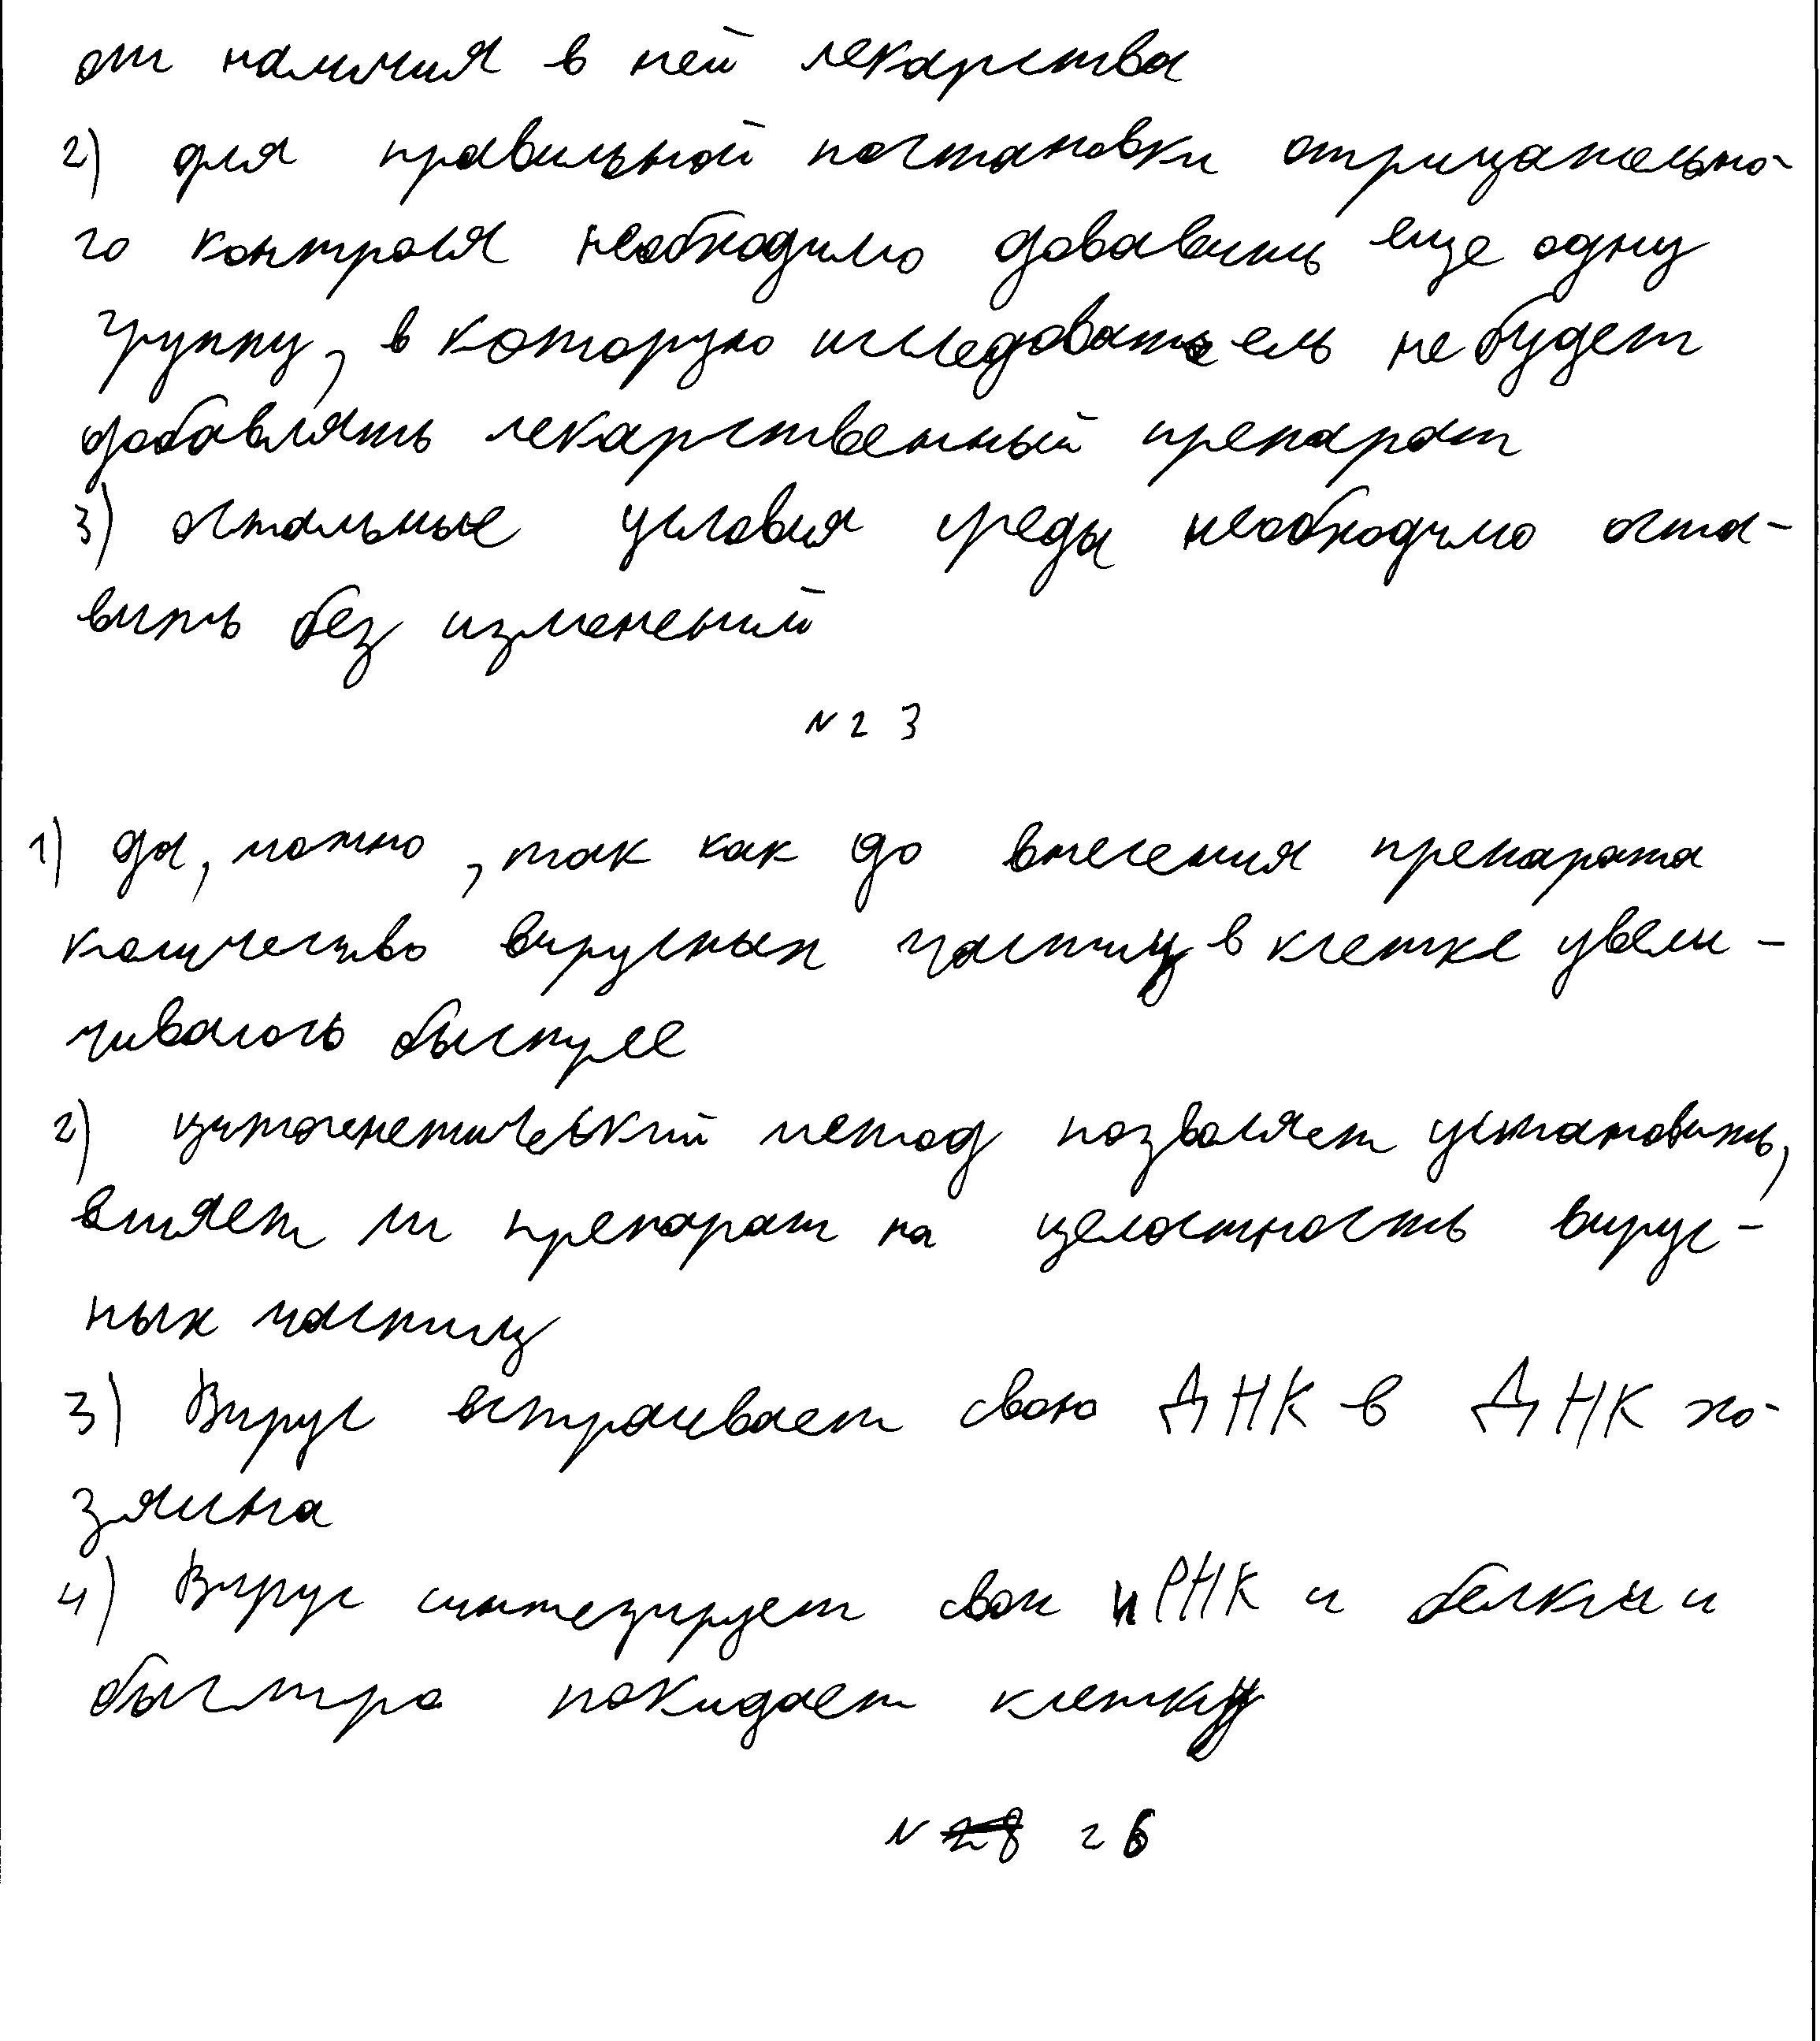 от наличия в ней лекарства
2) для правильной постановки отрицательно-
го контроля необходимо добавить еще одну
группу, в которую исследователь не будет
добавлять лекарственный препарат
3) остальные условия среды необходимо оста-
вить без изменений
N 2 3
1) да, можно, так как до внесения препарата
количество вирусных частиц в клетке увели-
чивалось быстрее
2) цитогенетический метод позволяет установить,
влияет ли препарат на целостность вирус-
ных частиц
3) Вирус встраивает свою ДНК в ДНК хо-
зяина
4) Вирус синтезирует свои иРНК и белки и
быстро покидает клетку
N 26